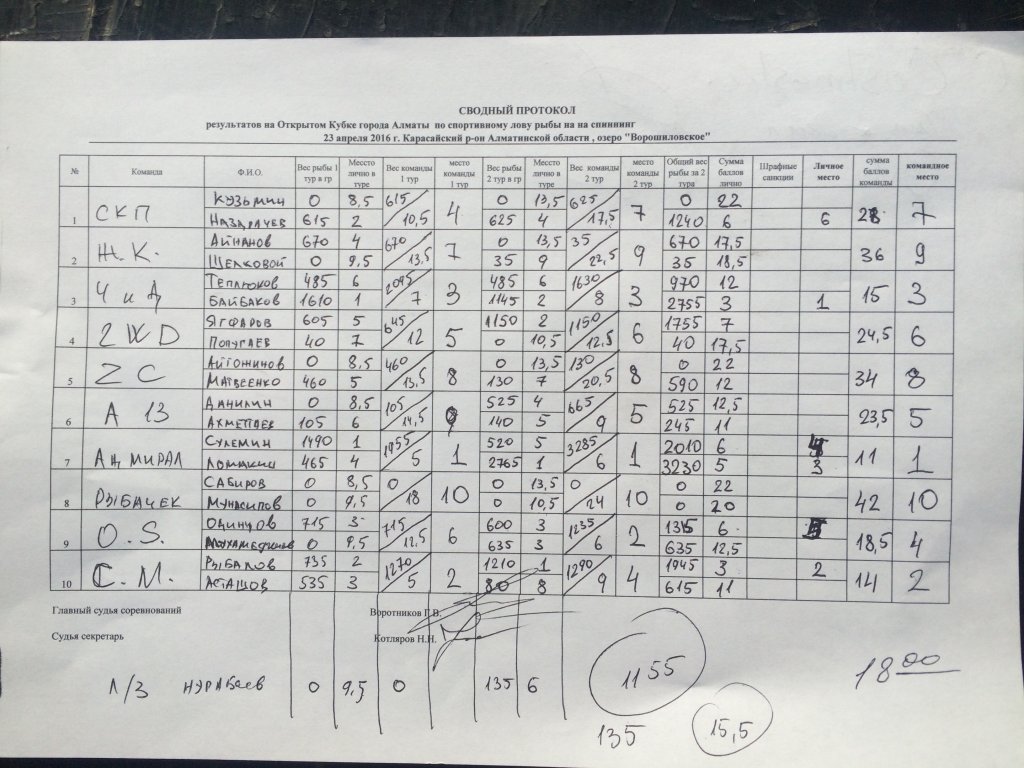 СВОДНЫЙ ПРОТОКОЛ
результатов на Открытом Кубке города Алматы по спортивному лову рыбы на на спиннинг
23 апреля 2016 г. Карасайский р-он Алматинской области , озеро "Ворошиловское"
№ Команда Ф.И.О. Вес рыбы 1 тур в гр Мессто лично в туре Вес команды 1 тур место команды 1 тур Вес рыбы 2 тур в гр Мессто лично в туре Вес команды 2 тур место команды 2 тур Общий вес рыбы за 2 тура Сумма баллов лично Штрафные санкции Личное место сумма баллов команды командное место
1 СКП Кузьмин 0 8,5 615/10,5 4 0 13,5 625/17,5 7 0 22 7
Назарачев 615 2 625 4 1240 6 6
2 Ж.К. Айнанов 670 4 670/13,5 7 0 13,5 35/22,5 9 670 17,5 36 9
Щелковой 0 9,5 35 9 35 18,5
3 Ч и Д Теплюков 485 6 2095/7 3 485 6 1630/8 3 970 12 15 3
Байбаков 1610 1 1145 2 2755 3 1
4 2WD Ягфаров 605 5 645/12 5 1150 2 1150/12,5 6 1755 7 24,5 6
Полугаев 40 7 0 10,5 40 17,5
5 ZC Айтожинов 0 8,5 460/13,5 8 0 13,5 130/20,5 8 0 22 34 8
Матвеенко 460 5 130 7 590 12
6 А 13 Данилин 0 8,5 105/14,5 9 525 4 665/9 5 525 12,5 23,5 5
Ахметаев 105 6 140 5 245 11
7 Адмирал Сулемин 1490 1 1955/5 1 520 5 3285/6 1 2010 6 11 1
Ломакин 465 4 2765 1 3230 5 3
8 Рыбачек Сабиров 0 8,5 0/18 10 0 13,5 0/24 10 0 22 42 10
Мунасипов 0 9,5 0 10,5 0 20
9 O.S. Одинцов 715 3 715/12,5 6 600 3 1235/6 2 1315 6 18,5 4
Мухамеджанов 0 9,5 635 3 635 12,5
10 С.М. Рыбалов 735 2 1270/5 2 1210 1 1290/9 4 1945 3 2 14 2
Асташов 535 3 80 8 615 11
Главный судья соревнований Воротников Г.В.
Судья секретарь Котляров Н.Н.
Л/З Нэрабаев 0 9,5 0 135 6
1155
135
15,5
18 00